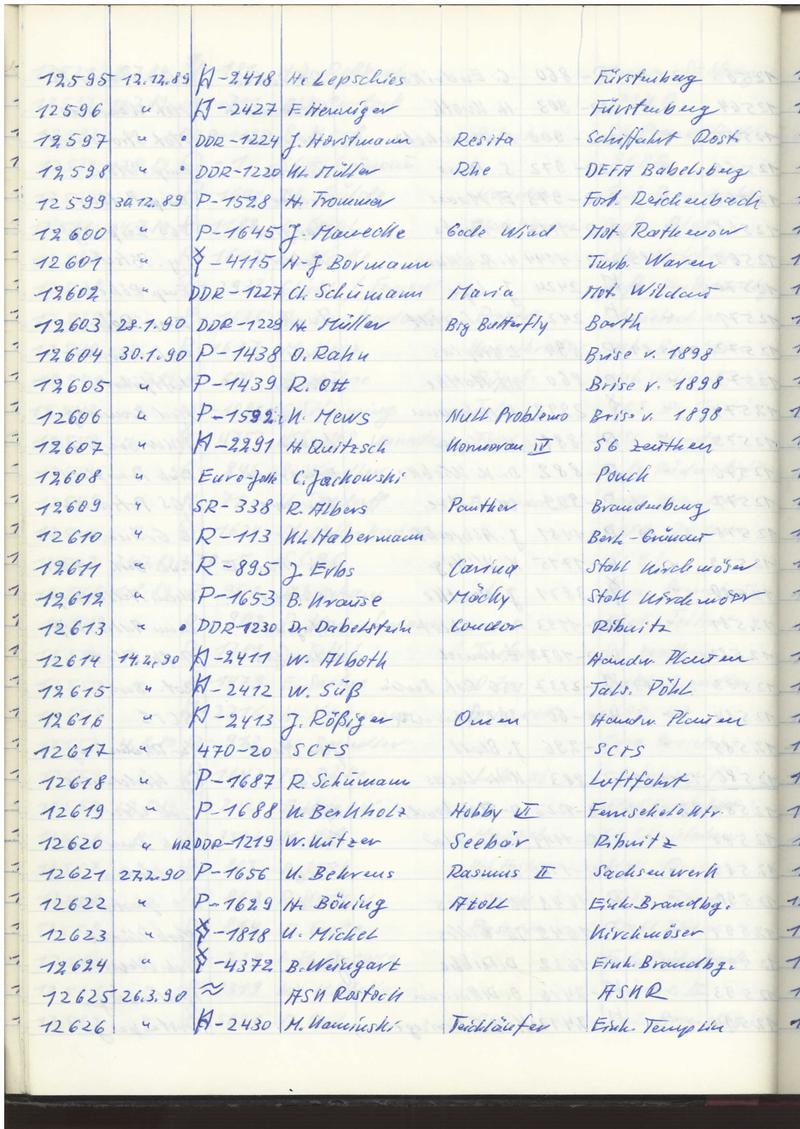 12595 12.12.89 -2418 H. Lepschies Fürstenberg
12596 " -2427 F. Henniger Fürstenberg
12597 " • DDR-1224 J. Horstmann Resita Schiffahrt Rost.
12598 " • DDR-1220 Kl. Müller Rhe DEFA Babelsberg
12599 30.12.89 P-1528 H. Trommer Fort. Reichenbach
12600 " P-1645 J. Manecke Gode Wind Mot. Rathenow
12601 " -4115 H-J Bormann Turb. Waren
12602 " DDR-1227 Ch. Schümann Maria Mot. Wildau
12603 28.1.90 DDR-1229 H. Müller Big Butterfly Barth
12604 30.1.90 P-1438 O. Rahn Brise v. 1898
12605 " P-1439 R. Ott Brise v. 1898
12606 " P-1592 K. Mews Null Problemo Brise v. 1898
12607 " -2291 H. Quitzsch Kormoran IV SG Zeuthen
12608 " Euro-Jolle C. Jachowski Pouch
12609 " SR-338 R. Albers Panther Brandenburg
12610 " R-113 Kl. Habermann Berl.-Grünau
12611 " R-895 J. Erbs Carina Stahl Kirchmöser
12612 " P-1653 B. Krause Mächy Stahl Kirchmöser
12613 " • DDR-1230 Dr. Dabelstein Condor Ribnitz
12614 14.2.90 -2411 W. Alboth Handw. Plauen
12615 " -2412 W. Süß Tals. Pöhl
12616 " -2413 J. Rößiger Omen Handw. Plauen
12617 " 470-20 SCTS SCTS
12618 " P-1687 R. Schümann Luftfahrt
12619 " P-1688 K. Berkholz Hobby VI Fernsehelektr.
12620 " KR DDR-1219 W. Kutzer Seebär Ribnitz
12621 27.2.90 P-1656 U. Behrens Rasmus II Sachsenwerk
12622 " P-1629 H. Böning Atoll Einh. Brandbg.
12623 " -1818 U. Michel Kirchmöser
12624 " -4372 B. Weingart Einh. Brandbg.
12625 26.3.90 ≈ ASK Rostock ASKR
12626 " -2430 M. Kaminski Teichläufer Einh. Templin